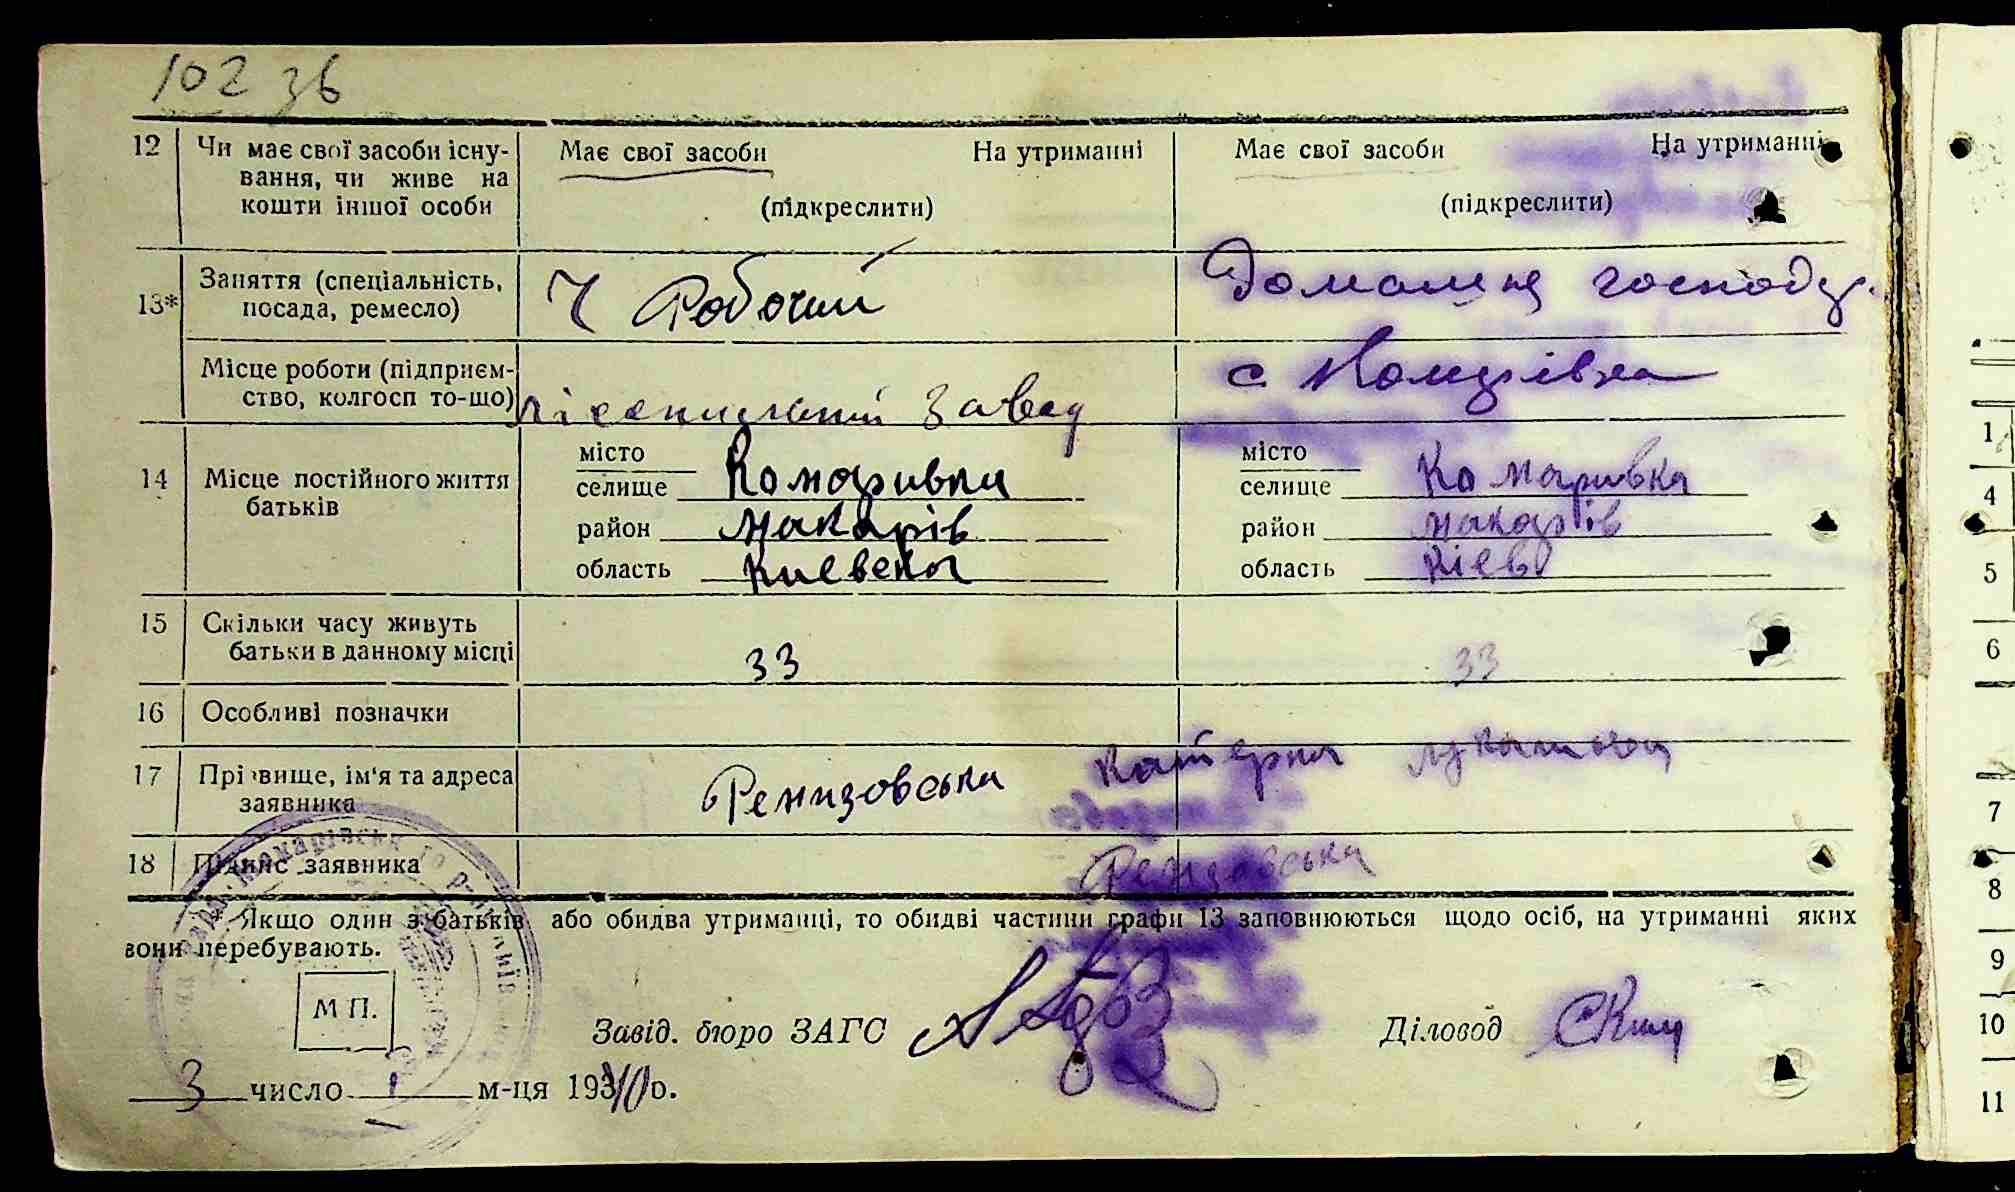 102 зв
12 Чи має свої засоби існу-
вання, чи живе на
кошти іншої особи
Має свої засоби На утриманні
(підкреслити)
Має свої засоби На утриманні
(підкреслити)
13* Заняття (спеціальність,
посада, ремесло)
Робочий
Домашня господ.
Місце роботи (підприєм-
ство, колгосп то-що)
завод
с Комарівка
14 Місце постійного життя
батьків
місто
селище Комаривка
район Макарів
область Киевска
місто
селище Комаривка
район Макарів
область Кіев
15 Скільки часу живуть
батьки в данному місці
33
33
16 Особливі позначки
17 Прізвище, ім'я та адреса
заявника
Ремизовська Катерина
18 Підпис заявника
Ремизовська
Якщо один з батьків або обидва утриманці, то обидві частини графи 13 заповнюються щодо осіб, на утриманні яких
вони перебувають.
М П.
Завід. бюро ЗАГС
Діловод
3 число 1 м-ця 1940 р.
1
4
5
6
7
8
9
10
11